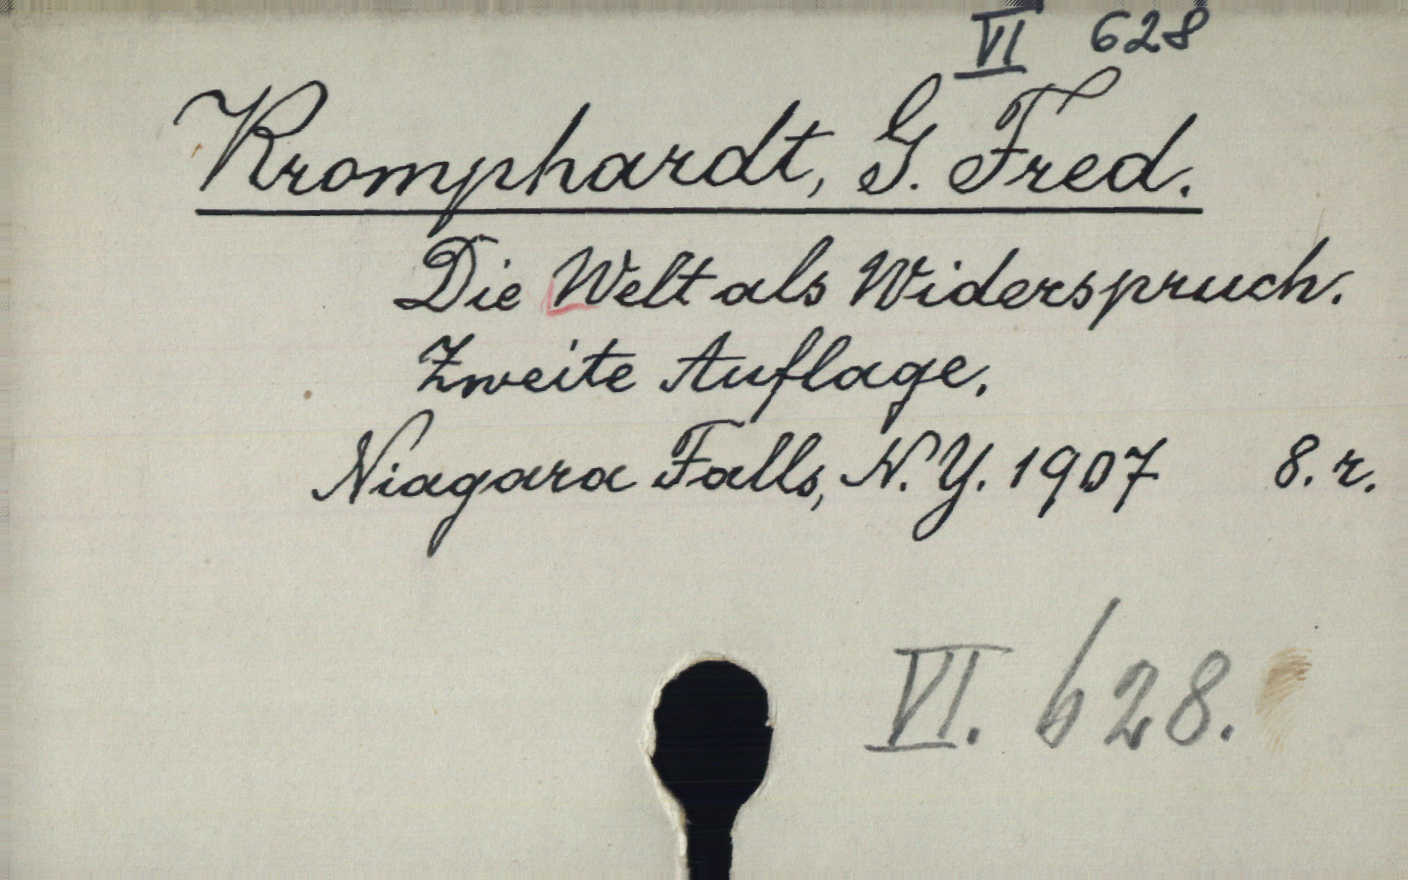 VI 628
Kromphardt, G. Fred.
Die Welt als Widerspruch.
Zweite Auflage.
Niagara Falls, N. Y. 1907 8. r.
VI. 628.